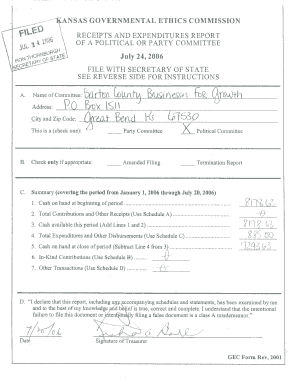 KANSAS GOVERNMENTAL ETHICS COMMISSION
FILED
JUL 24 2006
RON THORNBURGH
SECRETARY OF STATE
RECEIPTS AND EXPENDITURES REPORT
OF A POLITICAL OR PARTY COMMITTEE
July 24, 2006
FILE WITH SECRETARY OF STATE
SEE REVERSE SIDE FOR INSTRUCTIONS
A. Name of Committee: Barton County Business For Growth
Address: P.O Box 1511
City and Zip Code: Great Bend Ks 67530
This is a (check one): Party Committee X Political Committee
B. Check only if appropriate: Amended Filing Termination Report
C. Summary (covering the period from January 1, 2006 through July 20, 2006)
1. Cash on hand at beginning of period 8178.63
2. Total Contributions and Other Receipts (Use Schedule A) 0
3. Cash available this period (Add Lines 1 and 2) 8178.63
4. Total Expenditures and Other Disbursements (Use Schedule C) 885.00
5. Cash on hand at close of period (Subtract Line 4 from 3) 7293.63
6. In-Kind Contributions (Use Schedule B) 0
7. Other Transactions (Use Schedule D) 0
D. "I declare that this report, including any accompanying schedules and statements, has been examined by me
and to the best of my knowledge and belief is true, correct and complete. I understand that the intentional
failure to file this document or intentionally filing a false document is a class A misdemeanor."
7/20/06
Date Signature of Treasurer
GEC Form Rev, 2001